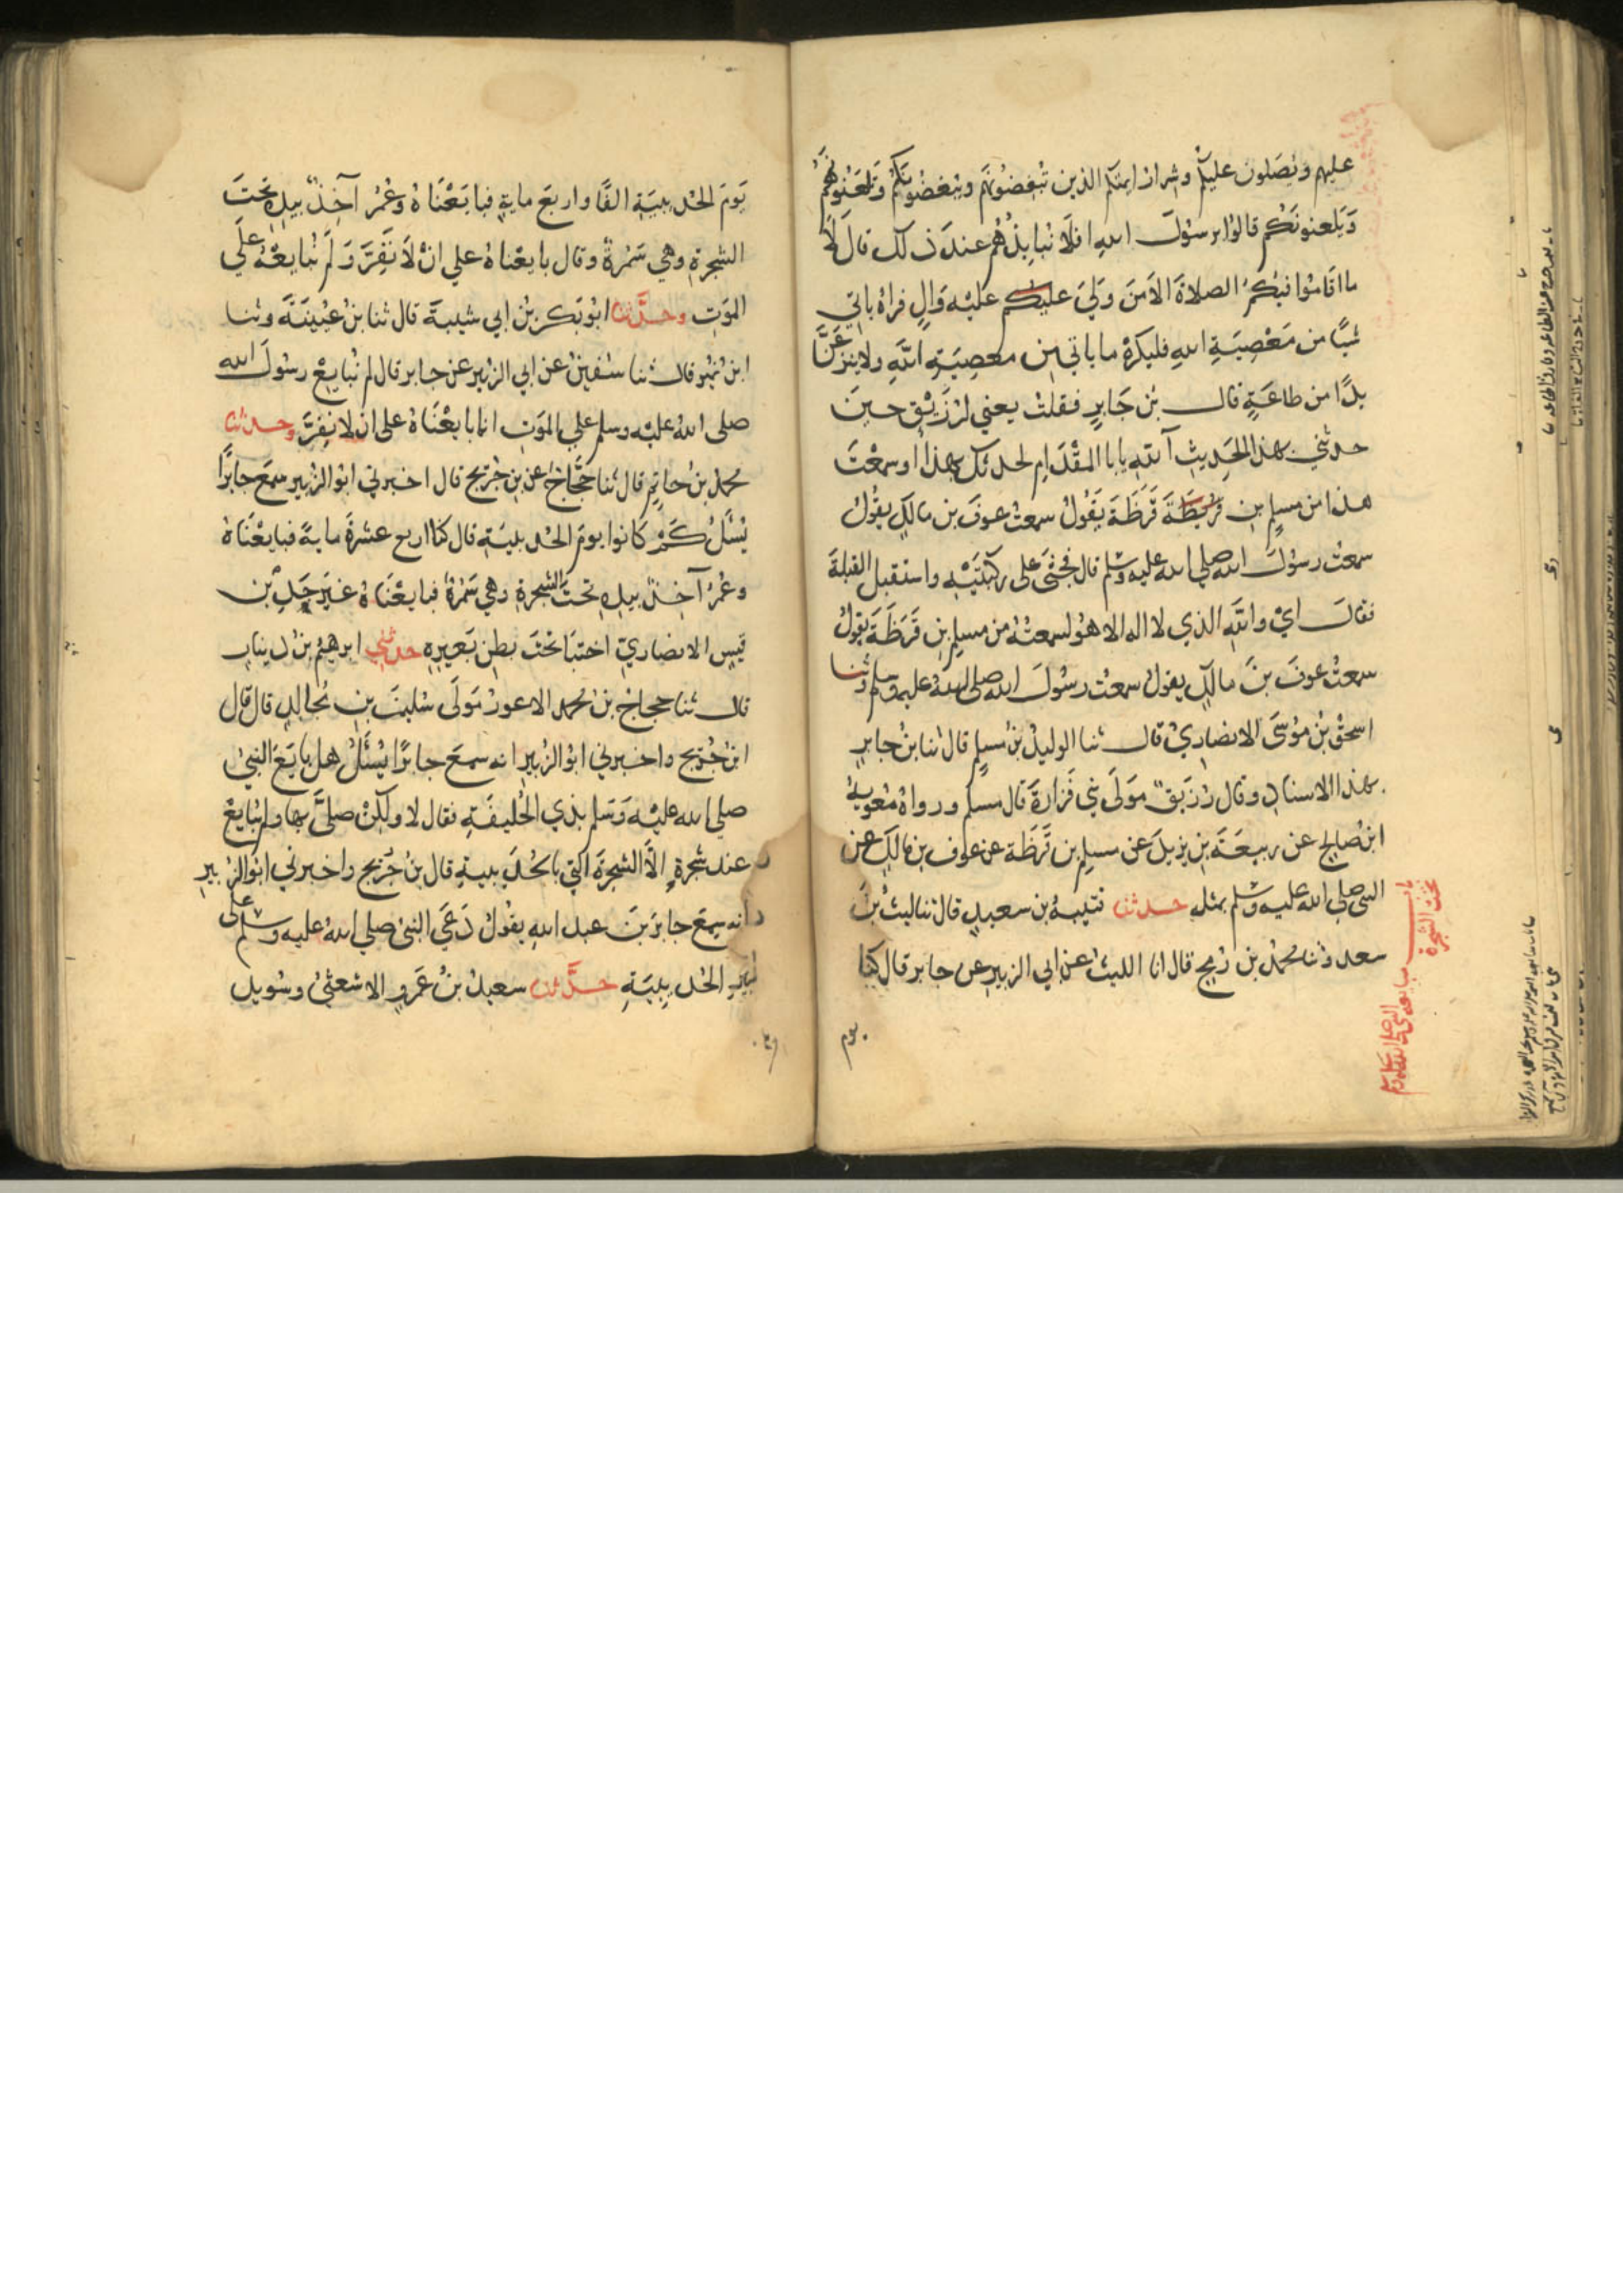 عليهم ويصلون عليكم وشرار ايمتكم الذين تبغضونهم ويبغضونكم وتلعنونهم
ويلعنونكم قالوا يرسول الله افلا ننابذهم عند ذلك قال لا
ما اقاموا فيكم الصلاة الا من ولي عليكم عليه وال فراه ياتي
شيا من معصية الله فليكره ما ياتي من معصية الله ولا ينزعن
يدا من طاعة قال بن جابر فقلت يعني لرزيق حين
حدثني بهذا الحديث آلله يابا المقدام لحدثك بهذا او سمعت
هذا من مسلم بن قريظة قرظة يقول سمعت عوف بن مالك يقول
سمعت رسول الله صلى الله عليه وسلم قال فجثى على ركبتيه واستقبل القبلة
فقال اي والله الذي لا اله الا هو لسمعته من مسلم بن قرظة يقول
سمعت عوف بن مالك يقول سمعت رسول الله صلى الله عليه وسلم وثنا
اسحق بن موسى الانصاري قال ثنا الوليد بن مسلم قال ثنا بن جابر
بهذا الاسناد وقال رزيق مولى بني فزارة قال مسلم ورواه معوية
ابن صالح عن ربيعة بن يزيد عن مسلم بن قرظة عن عوف بن مالك عن
النبي صلى الله عليه وسلم بمثله حدثنا قتيبة بن سعيد قال ثنا ليث بن
سعد وثنا محمد بن رمح قال انا الليث عن ابي الزبير عن جابر قال كنا
باب مبايعة النبي صلى الله عليه وسلم
تحت الشجرة
يوم الحديبية الفا واربع ماية فبايعناه وعمر آخذ بيده تحت
الشجرة وهي سمرة وقال بايعناه علي ان لا نفر ولم نبايعه علي
الموت وحدثنا ابو بكر بن ابي شيبة قال ثنا بن عيينة وثنا
ابن نمير قال ثنا سفين عن ابي الزبير عن جابر قال لم نبايع رسول الله
صلى الله عليه وسلم علي الموت انما بايعناه على ان لا نفر وحدثنا
محمد بن حاتم قال ثنا حجاج عن بن جريج قال اخبرني ابو الزبير سمع جابرا
يسئل كم كانوا يوم الحديبية قال كنا اربع عشرة ماية فبايعناه
وعمر آخذ بيده تحت الشجرة وهي سمرة فبايعناه غير جد بن
قيس الانصاري اختبا تحت بطن بعيره حدثني ابرهيم بن دينار
قال ثنا حجاج بن محمد الاعور مولى سليمن بن مجالد قال قال
ابن جريج واخبرني ابو الزبير انه سمع جابرا يسئل هل بايع النبي
صلي الله عليه وسلم بذي الحليفة فقال لا ولكن صلى بها ولم يبايع
عند شجرة الا الشجرة التي بالحديبية قال بن جريج واخبرني ابو الزبير
انه سمع جابر بن عبد الله يقول دعى النبي صلي الله عليه وسلم على
بير الحديبية حدثنا سعيد بن عمرو الاشعثي وسويد